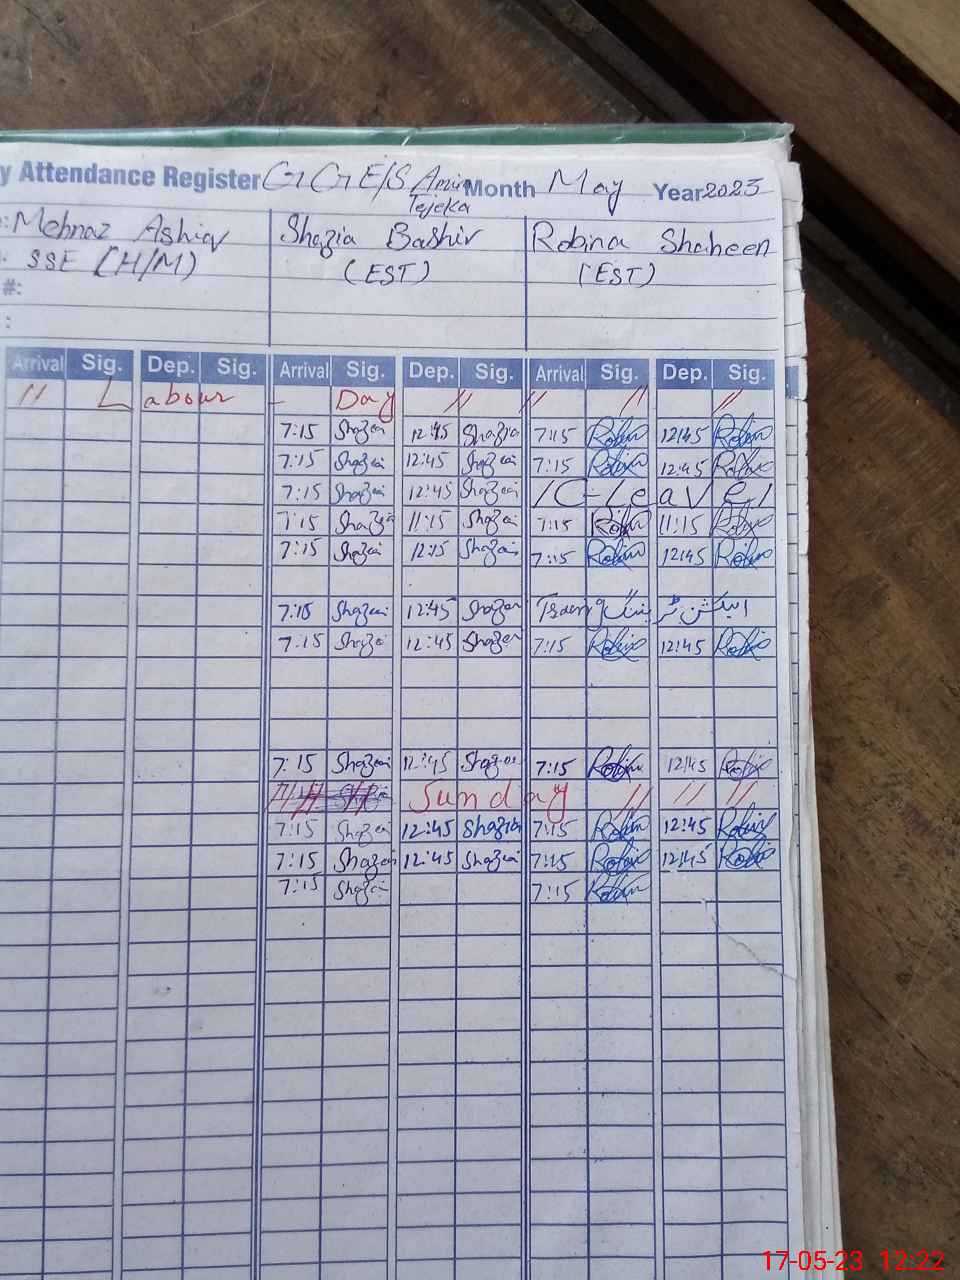 y Attendance Register GGE/S Amir Tejeka Month May Year 2023
: Mehnaz Ashiq Shazia Bashir Robina Shaheen
: SSE (H/M) (EST) (EST)
#:
:
Arrival Sig. Dep. Sig. Arrival Sig. Dep. Sig. Arrival Sig. Dep. Sig.
" Labour - Day " " " "
7:15 Shazia 12:45 Shazia 7:15 Robina 12:45 Robina
7:15 Shazia 12:45 Shazia 7:15 Robina 12:45 Robina
7:15 Shazia 12:45 Shazia 1 C-Leave
7:15 Shazia 11:15 Shazia 7:15 Robina 11:15 Robina
7:15 Shazia 12:15 Shazia 7:15 Robina 12:45 Robina
7:15 Shazia 12:45 Shazia الیکشن ٹر
7:15 Shazia 12:45 Shazia 7:15 Robina 12:45 Robina
7:15 Shazia 12:45 Shazia 7:15 Robina 12:45 Robina
Sunday " " "
7:15 Shazia 12:45 Shazia 7:15 Robina 12:45 Robina
7:15 Shazia 12:45 Shazia 7:15 Robina 12:45 Robina
7:15 Shazia 7:15 Robina
17-05-23 12:22